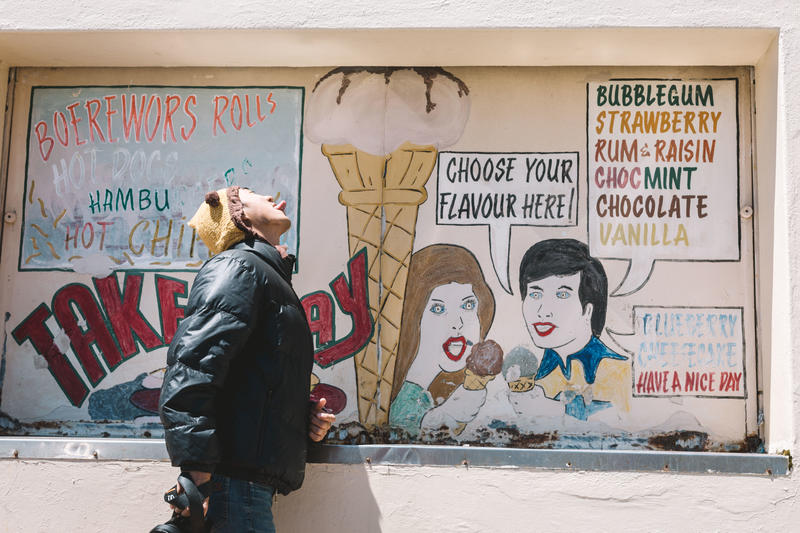 BOEREWORS ROLLS
HOT DOGS
HAMBU
HOT CHI
TAKE AWAY
CHOOSE YOUR
FLAVOUR HERE!
BUBBLEGUM
STRAWBERRY
RUM & RAISIN
CHOCMINT
CHOCOLATE
VANILLA
BLUEBERRY
CHEESECAKE
HAVE A NICE DAY
XXX